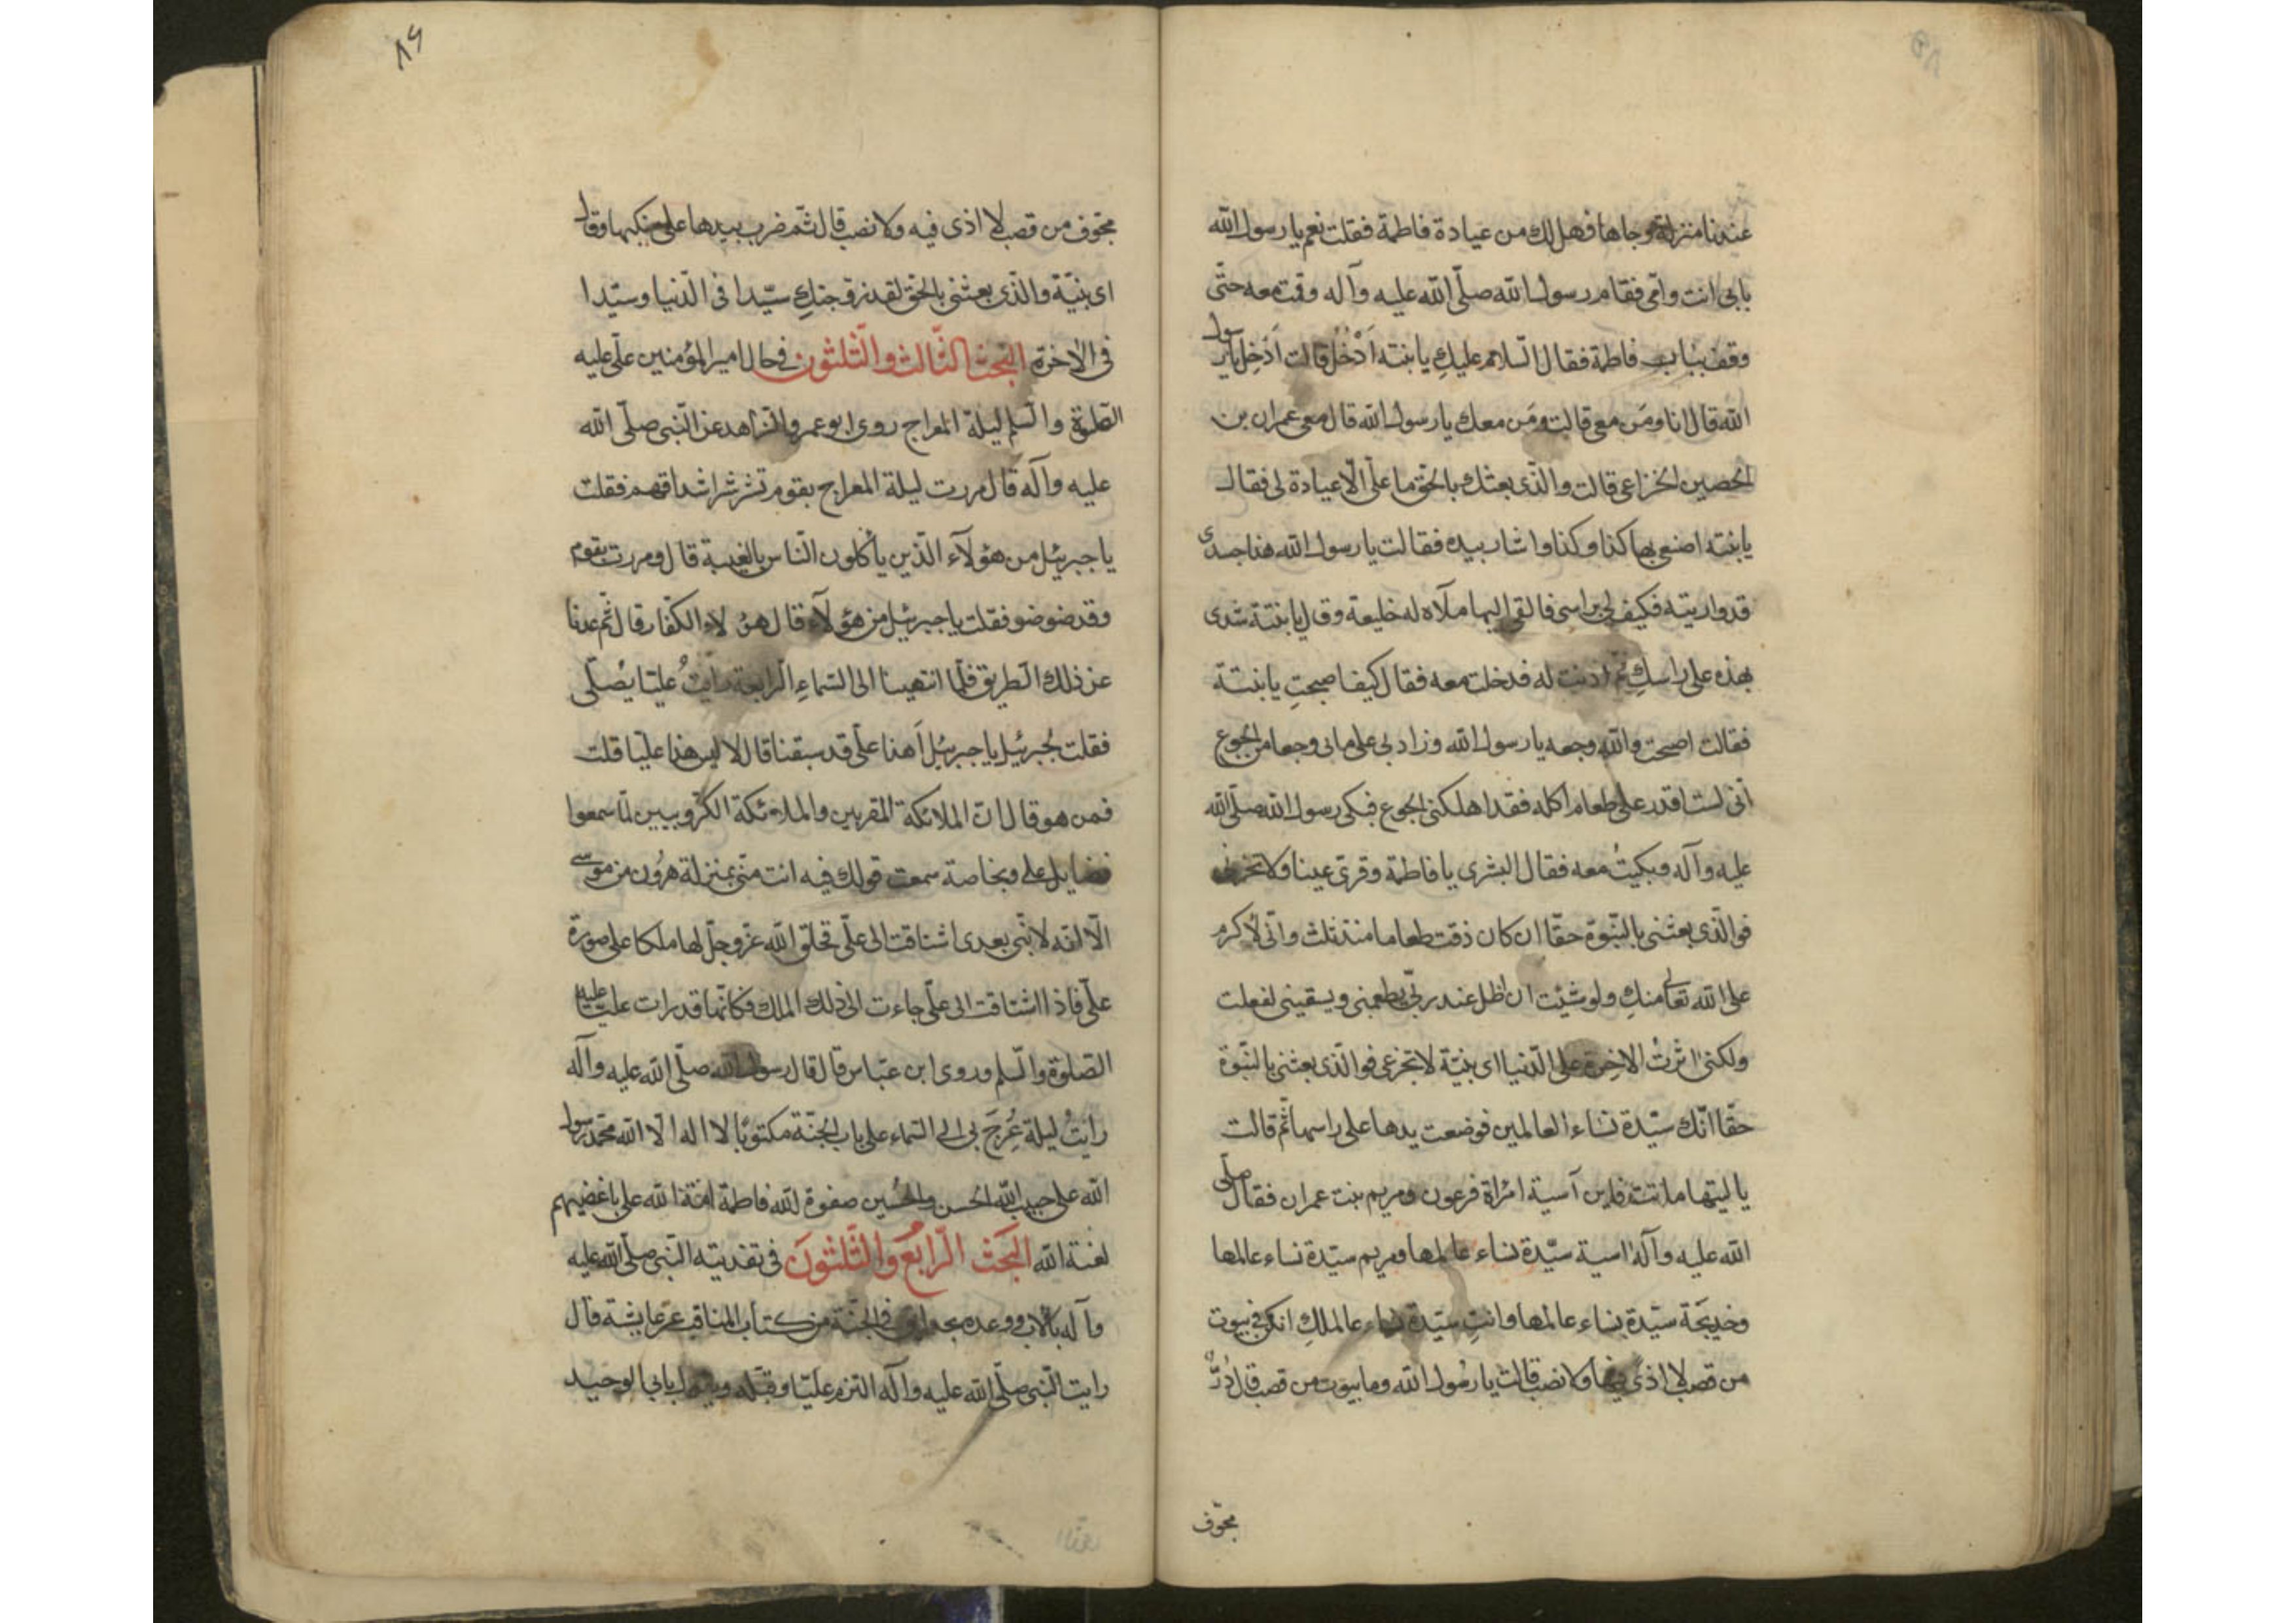 عندنا منزلة وجاها فهل لك من عيادة فاطمة فقلت نعم يا رسول الله
بابي انت وامي فقام رسول الله صلّى الله عليه وآله وقمت معه حتّى
وقف بباب فاطمة فقال السّلام عليكِ يا بنته اَدْخُلُ قالت اَدْخِل يا رسول
الله قال انا ومَن معى قالت ومَن معك يا رسول الله قال معى عمران بن
الحصين الخزاعى قالت والّذى بعثك بالحقّ ما علىّ الّا عباءة لى فقال
يا بنته اصنعى بها كذا وكذا واشار بيده فقالت يا رسول الله هذا جسدى
قد واريته فكيف لى براسى فالقى اليها ملآه له خليعة وقال يا بنتة شدى
بهذه على راسكِ ثمّ اذنت له فدخلت معه فقال كيف اصبحتِ يا بنتة
فقالت اصبحت والله وجعه يا رسول الله وزاد بى على ما بى وجعا من الجوع
انّى لست اقدر على طعام آكله فقد اهلكنى الجوع فبكى رسول الله صلّى الله
عليه وآله وبكيتُ معه فقال البشرى يا فاطمة وقرّى عينا ولا تحزنى
فوالّذى بعثنى بالنّبوّة حقّا ان كان ذقت طعاما منذ ثلث وانّى لأكرم
على الله تعالى منكِ ولو شئت ان اظل عند ربّى يطعمنى ويسقينى لفعلت
ولكنى اثرتُ الاخِرة على الدّنيا اى بنيّة لا تجزعى فوالّذى بعثنى بالنّبوّة
حقّا انّك سيّدة نساء العالمين فوضعت يدها على راسها ثمّ قالت
يا ليتها ماتت فاين آسية امراة فرعون ومريم بنت عمران فقال صلّى
الله عليه وآله اسية سيّدة نساء عالمها ومريم سيّدة نساء عالمها
وخديجَة سيّدة نساء عالمها وانتِ سيّدة نساء عالملكِ انكن فى بيوت
من قصب لا اذى فيها ولا نصب قالت يا رسُول الله وما بيوت من قصب قال دُرٌّ
مجوّف
٨٦
مجوّف من قصب لا اذى فيه ولا نصب قال ثمّ ضرب بيدها على منكبها وقال
اى بنيّة والّذى بعثنى بالحقّ لقد زوّجتكِ سيّدا فى الدّنيا وسيّدا
فى الاخرة البحث الثّالث والثّلثون فى حال امير المؤمنين علّى عليه
الصّلوة والسّلم ليلة المعراج روى ابو عمرو الزّاهد عن النّبى صلّى الله
عليه وآله قال مررت ليلة المعراج بقوم تشرشر اشداقهم فقلت
يا جبرئيل من هؤلآء الّذين يأكلون النّاس بالغيبة قال ومررت بقوم
وقد ضوضو فقلت يا جبرئيل من هؤلآء قال هؤلاء الكفّار قال ثمّ عدنا
عن ذلك الطريق فلّما انتهينا الى السّماءِ الرّابعة رايتُ عليّا يُصلّى
فقلت لجبرئيل يا جبرئيل اَهذا علّى قد سبقنا قال لا ليس هذا عليّا قلت
فمن هو قال انّ الملائكة المقربين والملائكة الكرّوبيين لمّا سمعوا
فضايل على وبخاصة سمعت قولك فيه انت منّى بمنزلة هرون من موسى
الّا انّه لا نبّى بعدى اشتاقت الى علّى فخلق الله عزّ وجلّ لها ملكا على صورة
علّى فاذا اشتاقت الى علّى جاءت الى ذلك الملك فكانّها قد رات عليّا عليه
الصّلوة والسّلم وروى ابن عبّاس قال قال رسول الله صلّى الله عليه وآله
رايتُ ليلة عُرِجَ بى الى السّماء على باب الجنّة مكتوبًا لا اله الا الله محمّد رسول
الله على حبيب الله الحسن والحسين صفوة الله فاطمة امة الله على باغضيهم
لعنة الله البَحَث الرّابعُ والثّلثونَ فى تفديته النّبى صلّى الله عليه
وآله بالاب ووعده بحدايق فى الجنّة من كتاب المناقب عن عايشة قال
رايت النّبى صلّى الله عليه وآله التزم عليّا وقبّله ويقول بابى الوحيد